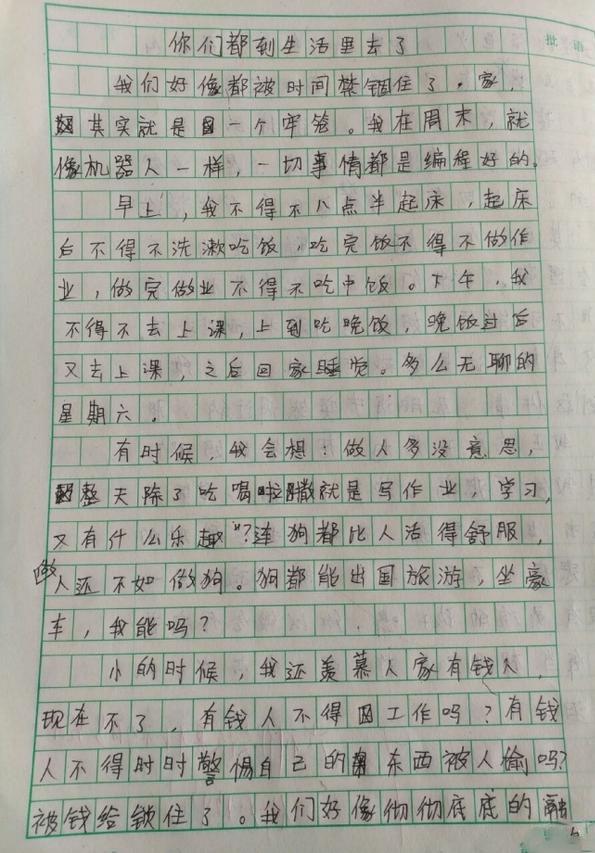 批语
你们都到生活里去了
我们好像都被时间禁锢住了。家，
其实就是一个牢笼。我在周末，就
像机器人一样，一切事情都是编程好的。
早上，我不得不八点半起床，起床
后不得不洗漱吃饭，吃完饭不得不做作
业，做完做业不得不吃中饭。下午，我
不得不去上课，上到吃晚饭，晚饭过后
又去上课，之后回家睡觉。多么无聊的
星期六。
有时候，我会想：做人多没意思，
整天除了吃喝啦撒就是写作业，学习，
又有什么乐趣？连狗都比人活得舒服，
做人还不如做狗。狗都能出国旅游，坐豪
车，我能吗？
小的时候，我还羡慕人家有钱人，
现在不了，有钱人不得工作吗？有钱
人不得时时警惕自己的东西被人偷吗？
被钱给锁住了。我们好像彻彻底底的融